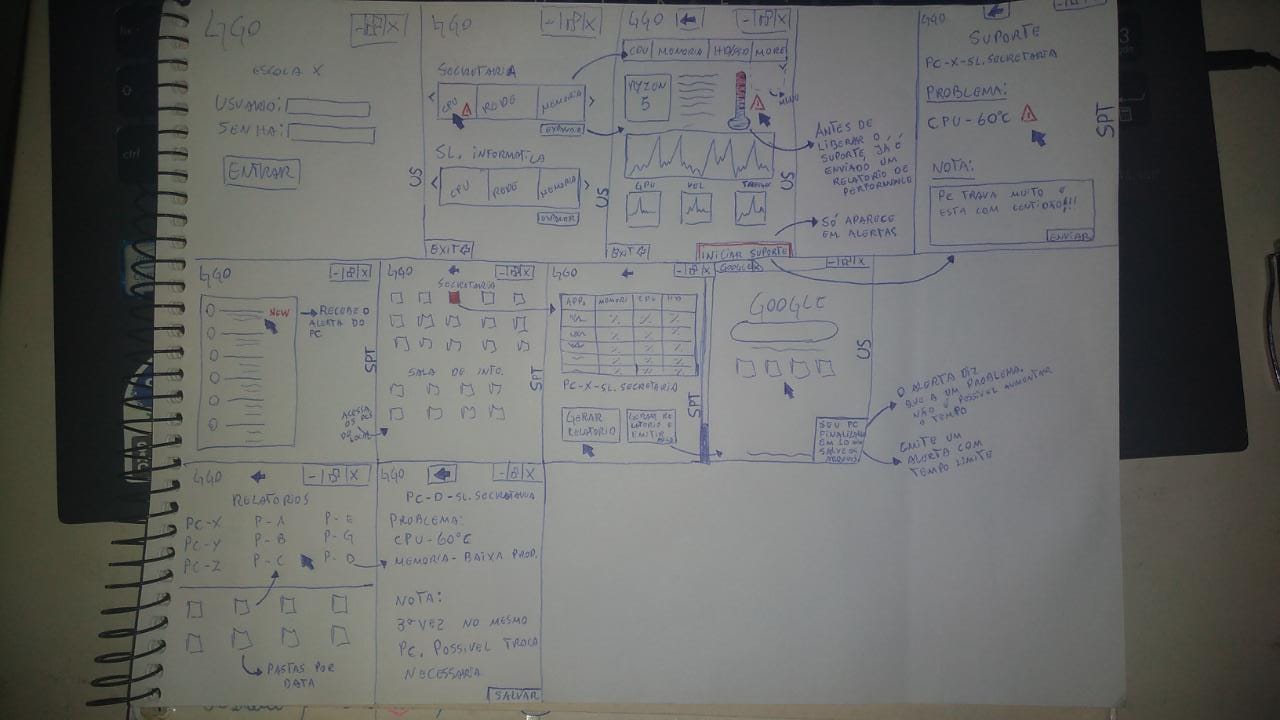 4GO
ESCOLA X
USUARIO:
SENHA:
ENTRAR
4GO
SECRETARIA
CPU REDE MEMORIA
EXPANDIR
SL. INFORMATICA
CPU REDE MEMORIA
EXPANDIR
EXIT
US
4GO
CPU MEMORIA HD/SSD MORE
RYZEN
5
MENU
GPU
ANTES DE
LIBERAR O
SUPORTE, JÁ É
ENVIADO UM
RELATORIO DE
PERFORMANCE
SÓ APARECE
EM ALERTAS
EXIT
INICIAR SUPORTE
US
US
4GO
SUPORTE
PC-X-SL.SECRETARIA
PROBLEMA:
CPU-60°C
NOTA:
PC TRAVA MUITO E
ESTA COM LENTIDÃO!!
ENVIAR
SPT
4GO
NEW
RECEBE O
ALERTA DO
PC
SPT
4GO
SECRETARIA
SALA DE INFO.
SPT
4GO
APPS MEMORI CPU HD
% % %
PC-X-SL.SECRETARIA
GERAR
RELATORIO
GERAR RE
LATORIO E
EMITIR
SPT
GOOGLE
GOOGLE
US
SEU PC
FINALIZA
EM 10 MIN
SALVE OS
ARQUIVOS
O ALERTA DIZ
QUE A UM PROBLEMA.
NÃO É POSSIVEL AUMENTAR
O TEMPO
EMITE UM
ALERTA COM
TEMPO LIMITE
4GO
RELATORIOS
PC-X P-A P-E
PC-Y P-B P-G
PC-Z P-C P-D
PASTAS POR
DATA
4GO
PC-D-SL.SECRETARIA
PROBLEMA:
CPU-60°C
MEMORIA-BAIXA PROP.
NOTA:
3ª VEZ NO MESMO
PC. POSSIVEL TROCA
NECESSARIA
SALVAR
ctrl